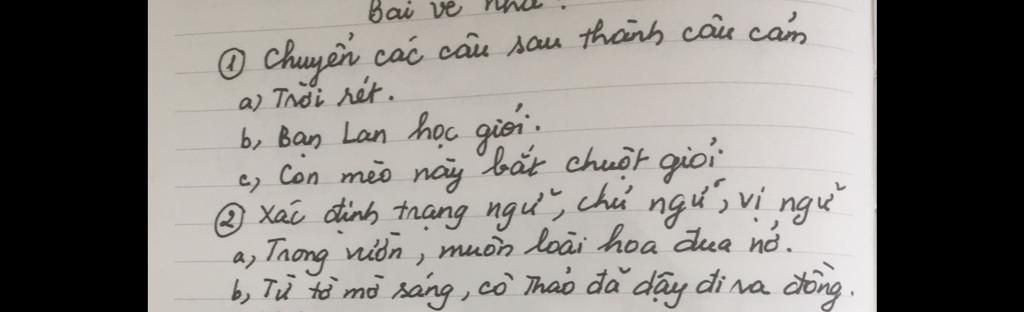 Bài về nhà:
① Chuyển các câu sau thành câu cảm
a) Trời rét.
b, Bạn Lan học giỏi.
c, Con mèo này bắt chuột giỏi
② Xác định trạng ngữ, chủ ngữ, vị ngữ
a, Trong vườn, muôn loài hoa đua nở.
b, Từ tờ mờ sáng, cô Thảo đã dậy đi ra đồng.